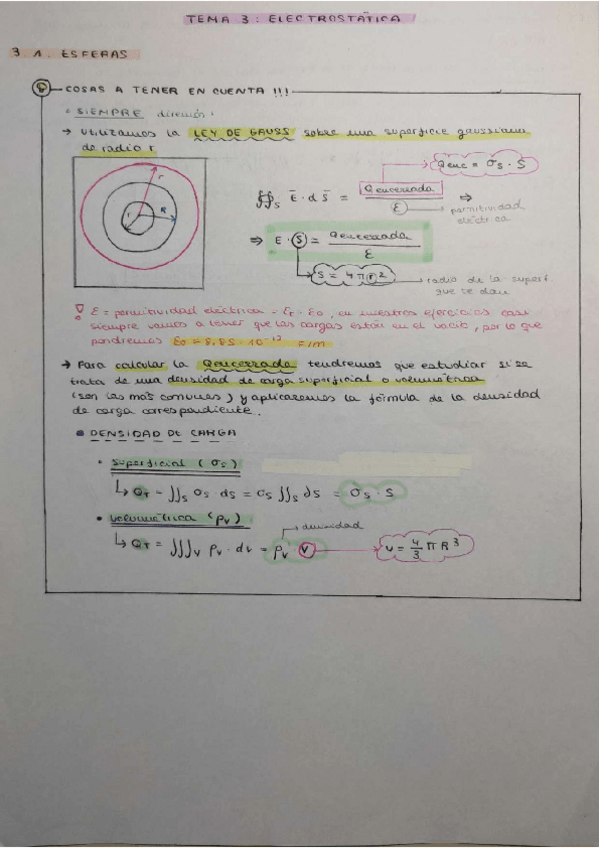 TEMA 3: ELECTROSTÁTICA
3.1. ESFERAS
COSAS A TENER EN CUENTA !!!
SIEMPRE dirección:
→ Utilizamos la LEY DE GAUSS sobre una superficie gaussiana
de radio r
Qenc = σs · S
r
R
∯s Ē · d S̄ = Qencerrada / ε ⇒
permitividad
eléctrica
⇒ E · S = Qencerrada / ε
S = 4πr²
radio de la superf.
que te dan
! ε = permitividad eléctrica = εr · ε0, en nuestros ejercicios casi
siempre vamos a tener que las cargas están en el vacío, por lo que
pondremos ε0 = 8,85 · 10⁻¹² F/m
→ Para calcular la Qencerrada tendremos que estudiar si se
trata de una densidad de carga superficial o volumétrica
(son las más comunes) y aplicaremos la fórmula de la densidad
de carga correspondiente.
DENSIDAD DE CARGA
• Superficial (σs)
↳ QT = ∬s σs · ds = σs ∬s ds = σs · S
• Volumétrica (ρv)
densidad
↳ QT = ∭v ρv · dv = ρv · V
V = 4/3 π R³